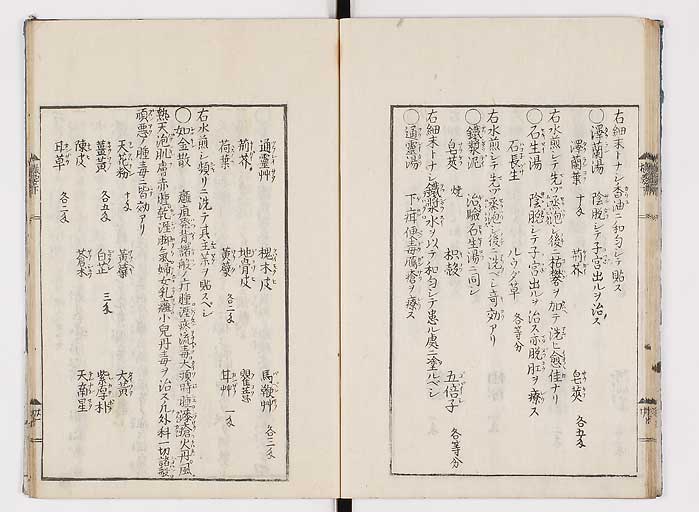 右細末トナシ香油ニ和匀シテ貼ス
○澤蘭湯 陰脫シテ子宮出ルヲ治ス
澤蘭葉 十戔 荊芥 皂莢 各五戔
右水煎シテ先ツ蒸泡シ後ニ枯礬ヲ加テ洗ヒ愈佳ナリ
○石生湯 陰脫シテ子宮出ルヲ治ス亦脫肛ヲ療ス
石長生 各等分
右水煎シテ先ツ蒸泡シ後ニ洗ベシ奇効アリ
○鐵漿泥 治驗石生湯ニ同シ
皂莢 燒 枳殼 五倍子 各等分
右細末トナシ鐵漿水ヲ以テ和匀シテ患ル處ニ塗ルベシ
○通靈湯 下疳便毒臁瘡ヲ療ス
通靈艸 樸木皮 馬鞭艸 各三戔
荊芥 地骨皮 瞿麦
荷葉 黃蘗 各二戔 耳艸 一戔
右水煎シ頻リニ洗テ其主薬ヲ貼スベシ
○如金散 癰疽發背諸般ノ疔腫 流毒大頭時腫漆瘡火丹風
熱天泡肌膚赤腫乾湿脚氣婦女乳癰小兒丹毒ヲ治ス凡外科一切諸般
頑悪ノ腫毒ニ皆効アリ
天花粉 十戔 黃蘗 大黃
薑黃 各五戔 白芷 三戔 紫厚朴
陳皮 蒼朮 天南星
耳草 各二戔